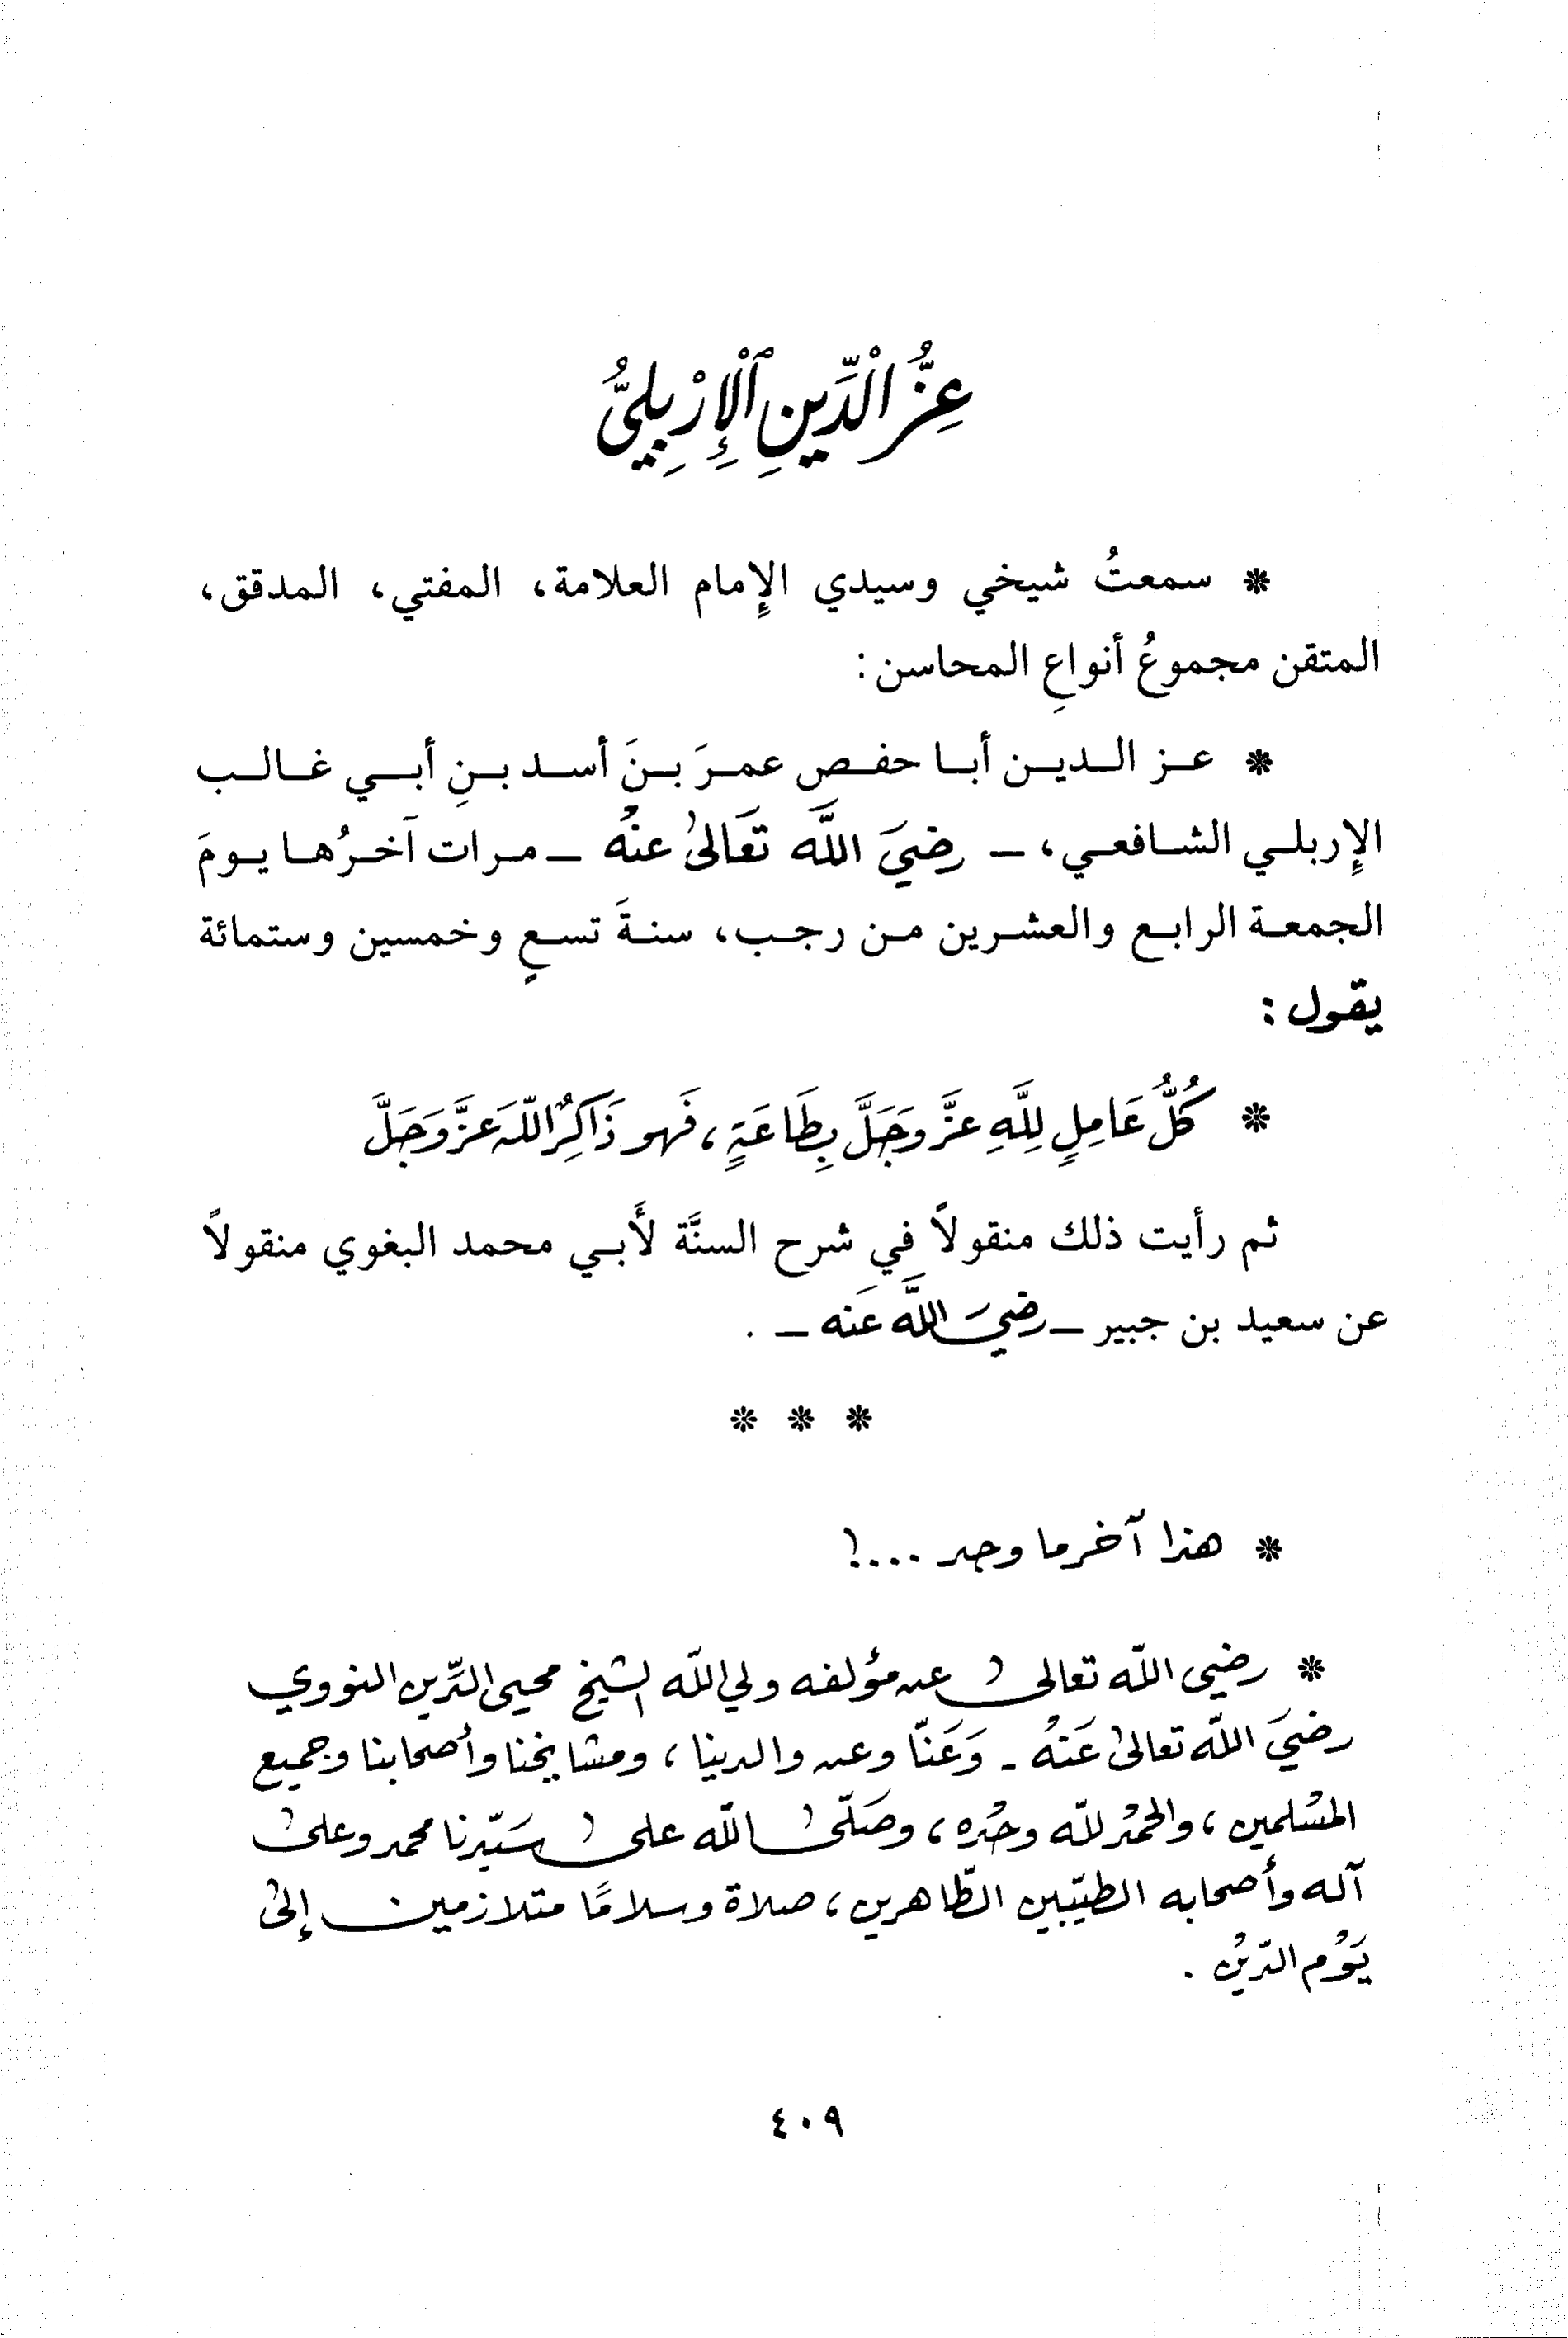 عِزُّ الْدِّينِ ٱلْإِرْبِلِيُّ
* سمعتُ شيخي وسيدي الإِمام العلامة، المفتي، المدقق،
المتقن مجموعُ أنواعِ المحاسن:
* عز الدين أبا حفص عمرَ بنَ أسد بنِ أبي غالب
الإِربلي الشافعي، ـ رضيَ اللَّه تعَالىٰ عنهُ ـ مرات آخرُها يومَ
الجمعة الرابع والعشرين من رجب، سنةَ تسعٍ وخمسين وستمائة
يقول:
* كُلُّ عَامِلٍ لِلَّهِ عزَّ وَجَلَّ بِطَاعَةٍ، فَهو ذَاكِرٌ اللّهَ عَزَّ وَجَلَّ
ثم رأيت ذلك منقولاً في شرح السنَّة لأَبي محمد البغوي منقولاً
عن سعيد بن جبير ـ رضيَ اللَّه عَنه ـ .
* * *
* هذا آخر ما وجد ...!
* رضي اللّه تعالىٰ عن مؤلفه ولي اللّه الشيخ محيي الدِّين النووي
رضيَ اللّه تعالىٰ عَنهُ ـ وَعَنّا وعن والدينا، ومشايخنا وأصحابنا وجميع
المسْلمين، والحمْد للّه وحْده، وصَلّىٰ اللّه علىٰ سَيّدنا محمد وعلىٰ
آله وأصحابه الطيّبين الطّاهرين، صلاة وسلامًا متلازمين إلىٰ
يَوْم الدّيْن .
٤٠٩